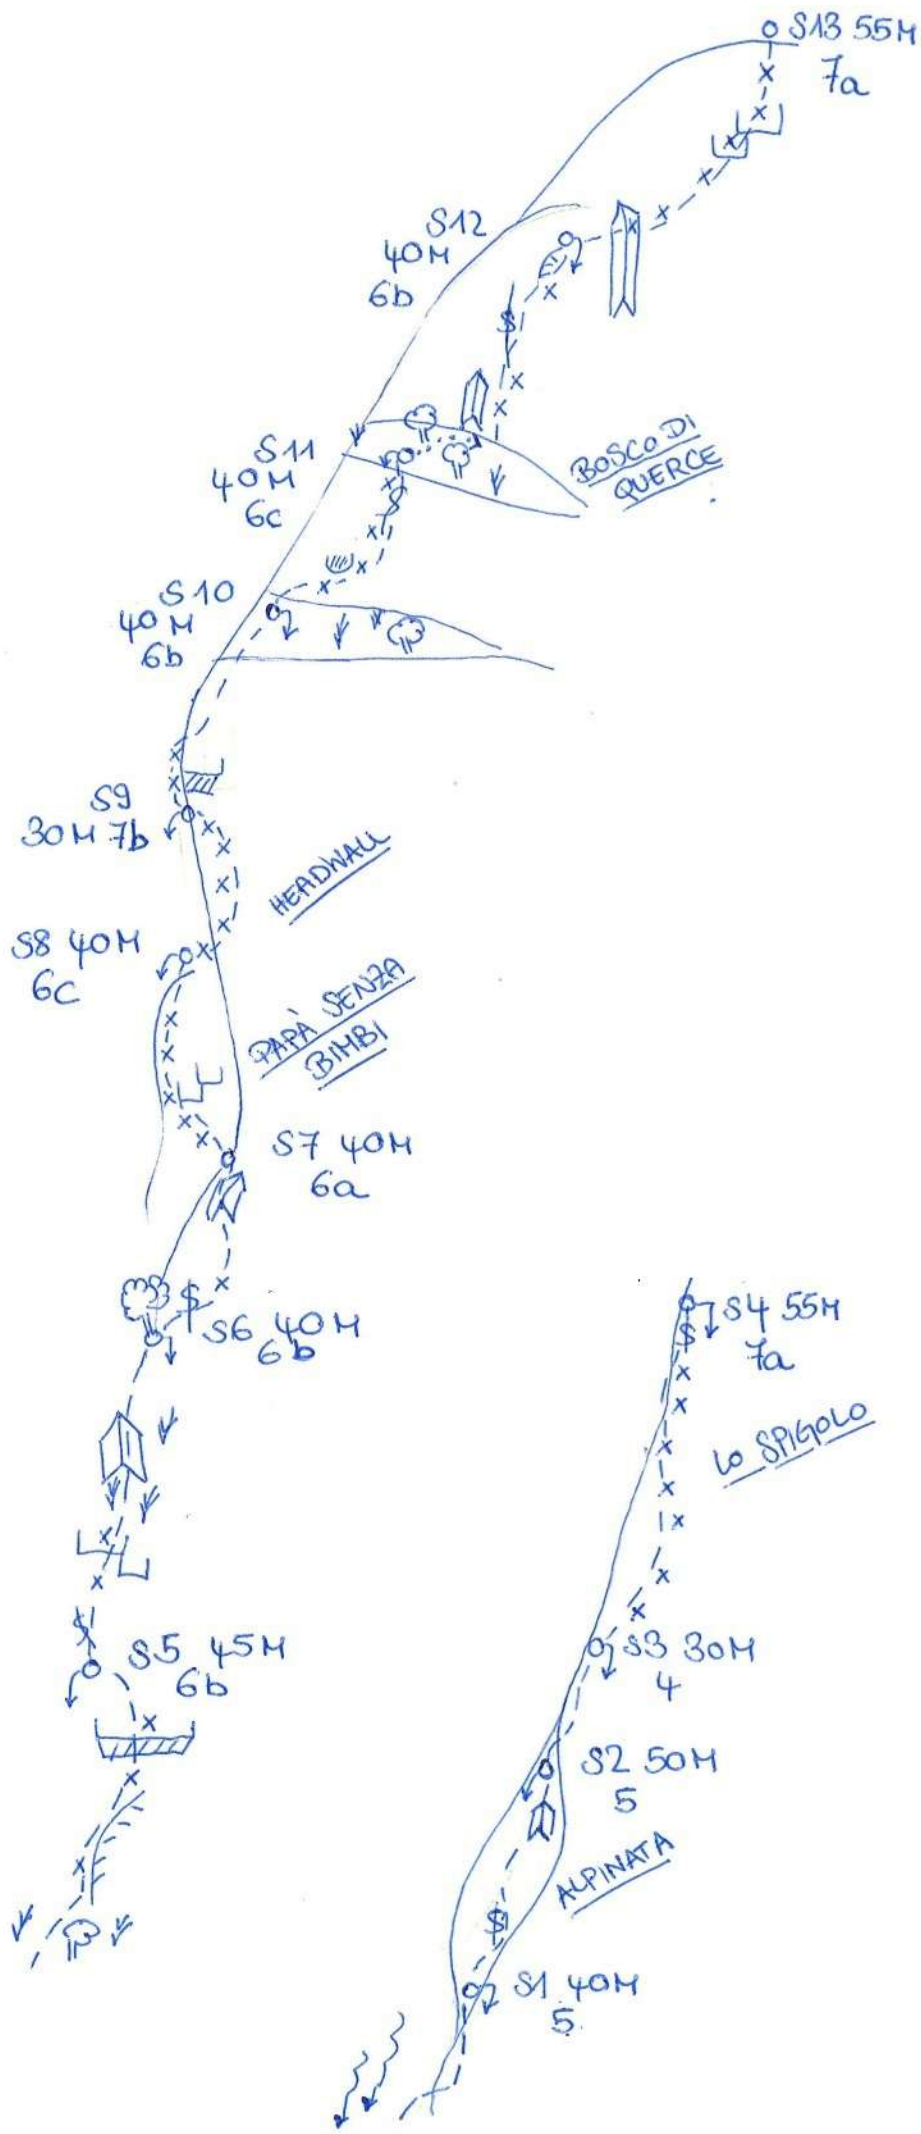 S13 55M
7a
S12
40M
6b
BOSCO DI
QUERCE
S11
40M
6c
S10
40M
6b
S9
30M 7b
HEADWALL
S8 40M
6c
PAPÀ SENZA
BIMBI
S7 40M
6a
S6 40M
6b
S4 55M
7a
LO SPIGOLO
S5 45M
6b
S3 30M
4
S2 50M
5
ALPINATA
S1 40M
5